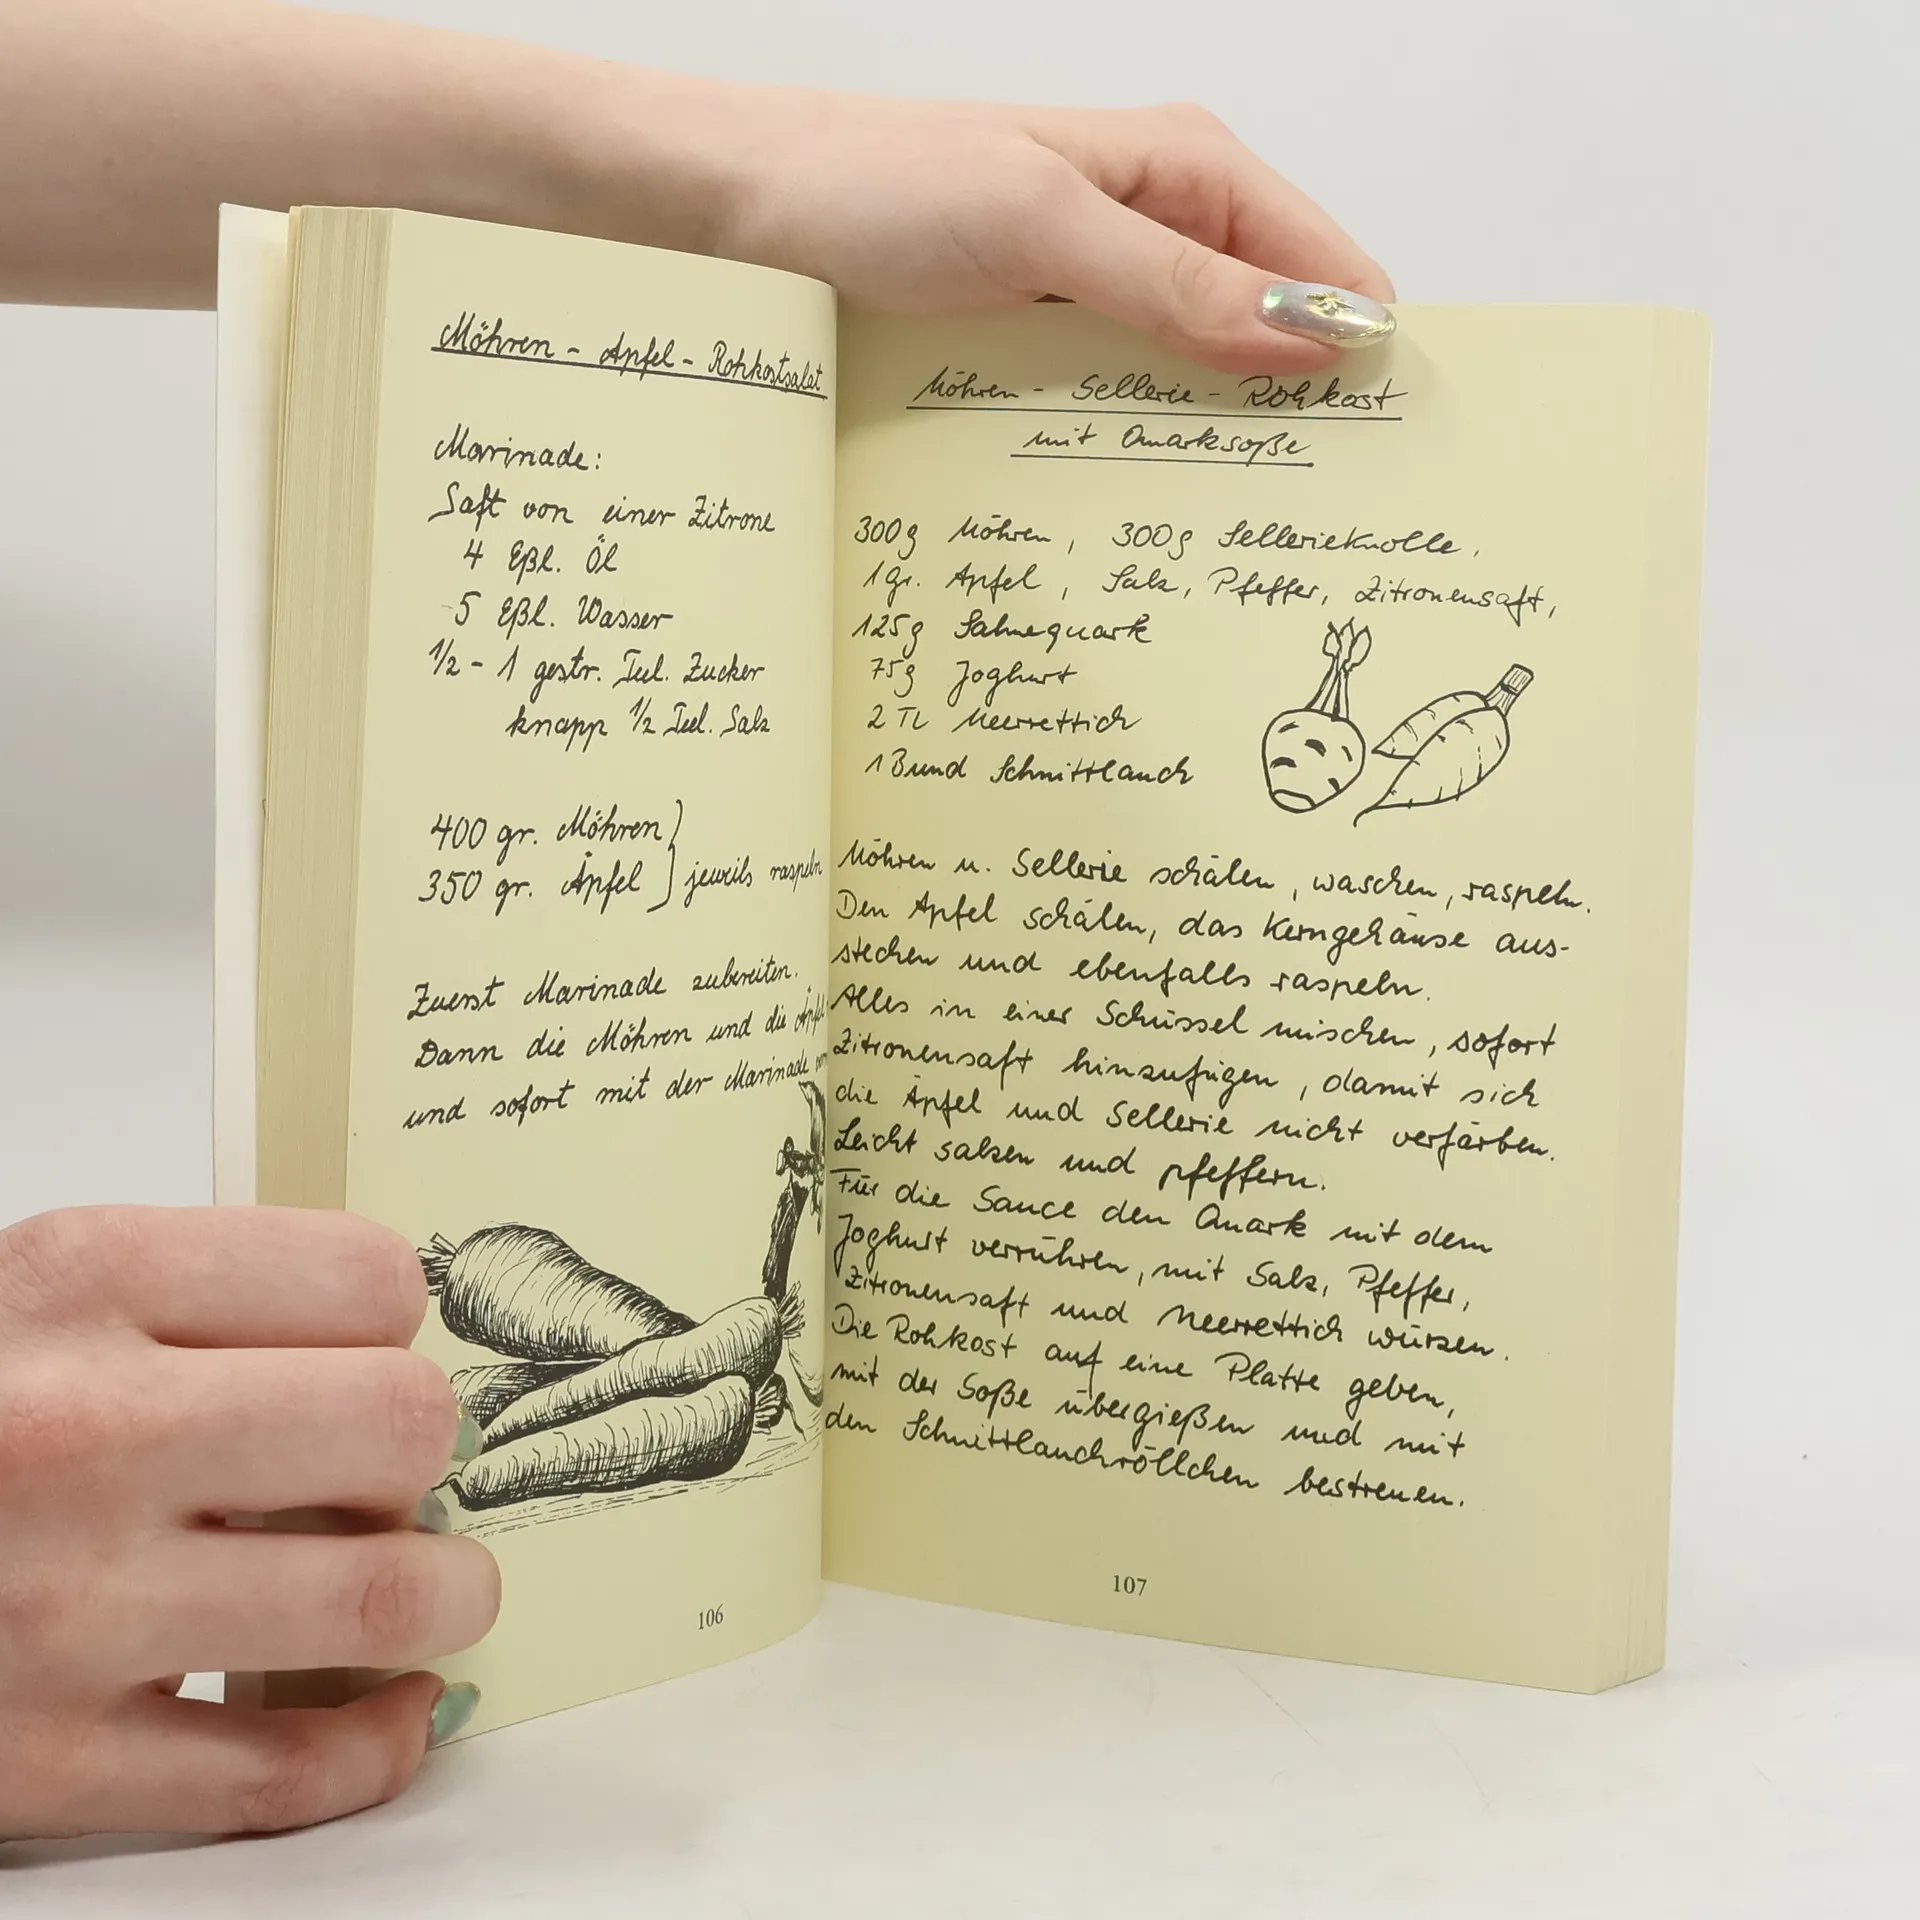 Möhren - Apfel - Rohkostsalat
Marinade:
Saft von einer Zitrone
4 Eßl. Öl
5 Eßl. Wasser
1/2 - 1 gestr. Teel. Zucker
knapp 1/2 Teel. Salz
400 gr. Möhren
350 gr. Äpfel } jeweils raspeln
Zuerst Marinade zubereiten.
Dann die Möhren und die Äpfel
und sofort mit der Marinade
106
Möhren - Sellerie - Rohkost
mit Quarksoße
300g Möhren, 300g Sellerieknolle,
1 gr. Apfel, Salz, Pfeffer, Zitronensaft,
125g Sahnequark
75g Joghurt
2 TL Meerrettich
1 Bund Schnittlauch
Möhren u. Sellerie schälen, waschen, raspeln.
Den Apfel schälen, das Kerngehäuse aus-
stechen und ebenfalls raspeln.
Alles in einer Schüssel mischen, sofort
Zitronensaft hinzufügen, damit sich
die Äpfel und Sellerie nicht verfärben.
Leicht salzen und pfeffern.
Für die Sauce den Quark mit dem
Joghurt verrühren, mit Salz, Pfeffer,
Zitronensaft und Meerrettich würzen.
Die Rohkost auf eine Platte geben,
mit der Soße übergießen und mit
den Schnittlauchröllchen bestreuen.
107